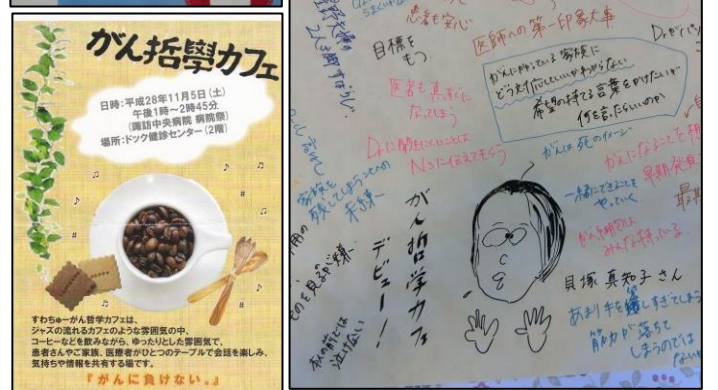 がん哲學カフェ
日時:平成28年11月5日(土)
午後1時～2時45分
(諏訪中央病院 病院祭)
場所:ドック健診センター(2階)
すわちゅーがん哲学カフェは、
ジャズの流れるカフェのような雰囲気の中、
コーヒーなどを飲みながら、ゆったりとした雰囲気で、
患者さんやご家族、医療者がひとつのテーブルで会話を楽しみ、
気持ちや情報を共有する場です。
『がんに負けない。』
患者も安心
目標を
もつ
医師への第一印象大事
医者も真すぐに
なってしまう
がんになっている家族に
どう対応していいかわからない
希望の持てる言葉をかけたいが
何を言ったらいいのか
Drに聞きにくいことは
Nsに伝えてもらう
がんは死のイメージ
家族を
残してしまうことへの
未練
一緒にできることを
やっていく
早期発見
がん細胞は
みんな持っている
がん哲学カフェ
デビュー!
貝塚真知子さん
あまり手を
しすぎてしまう
筋力が落ちて
しまうのでは
泣けない